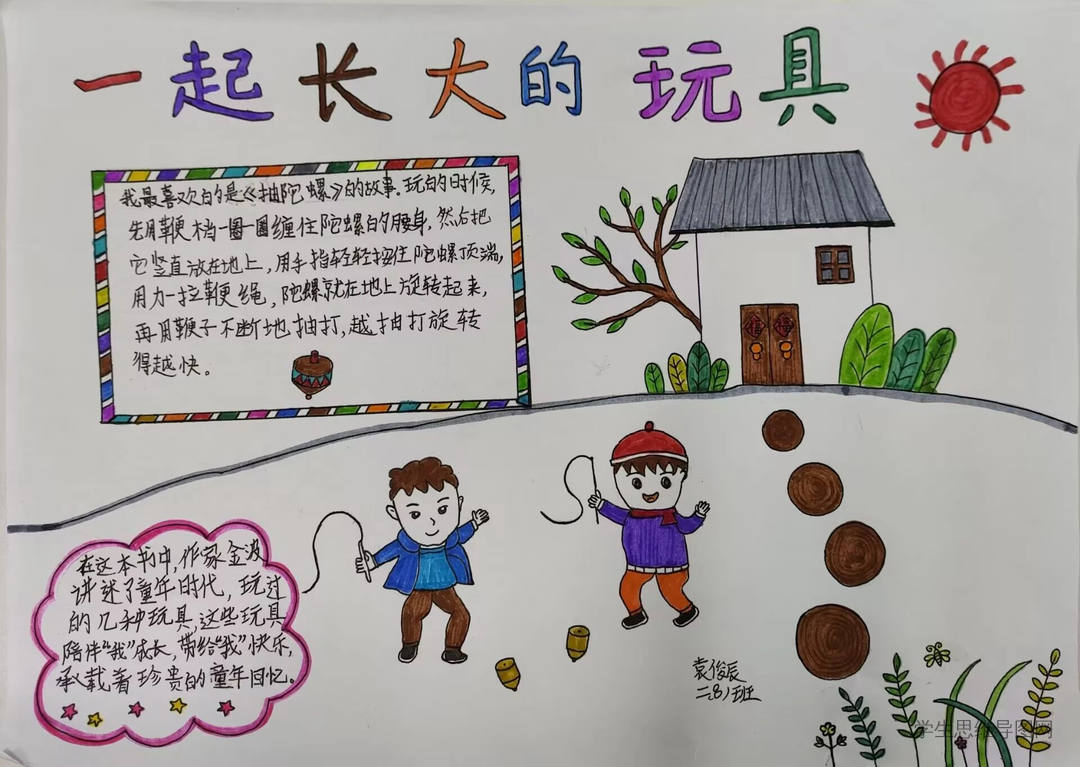 一起长大的玩具
我最喜欢的是《抽陀螺》的故事。玩的时候,
先用鞭梢一圈一圈缠住陀螺的腰身,然后把
它竖直放在地上,用手指轻轻按住陀螺顶端,
用力一拉鞭绳,陀螺就在地上旋转起来,
再用鞭子不断地抽打,越抽打旋转
得越快。
福 福
在这本书中,作家金波
讲述了童年时代,玩过
的几种玩具,这些玩具
陪伴“我”成长,带给“我”快乐,
承载着珍贵的童年回忆。
袁俊辰
二(8)班
学生思维导图网